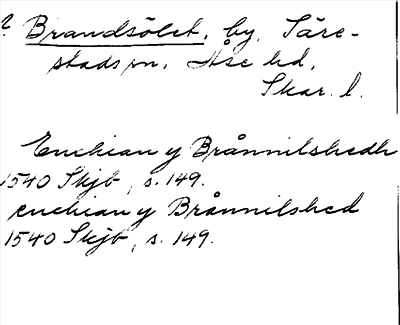 ? Brandsölet, by, Säre-
stads sn, Åse hd,
Skar. l.
Enchian y Brånnilshedh
1540 Skjb, s. 149.
enchian y Brånnilshed
1540 Skjb, s. 149.